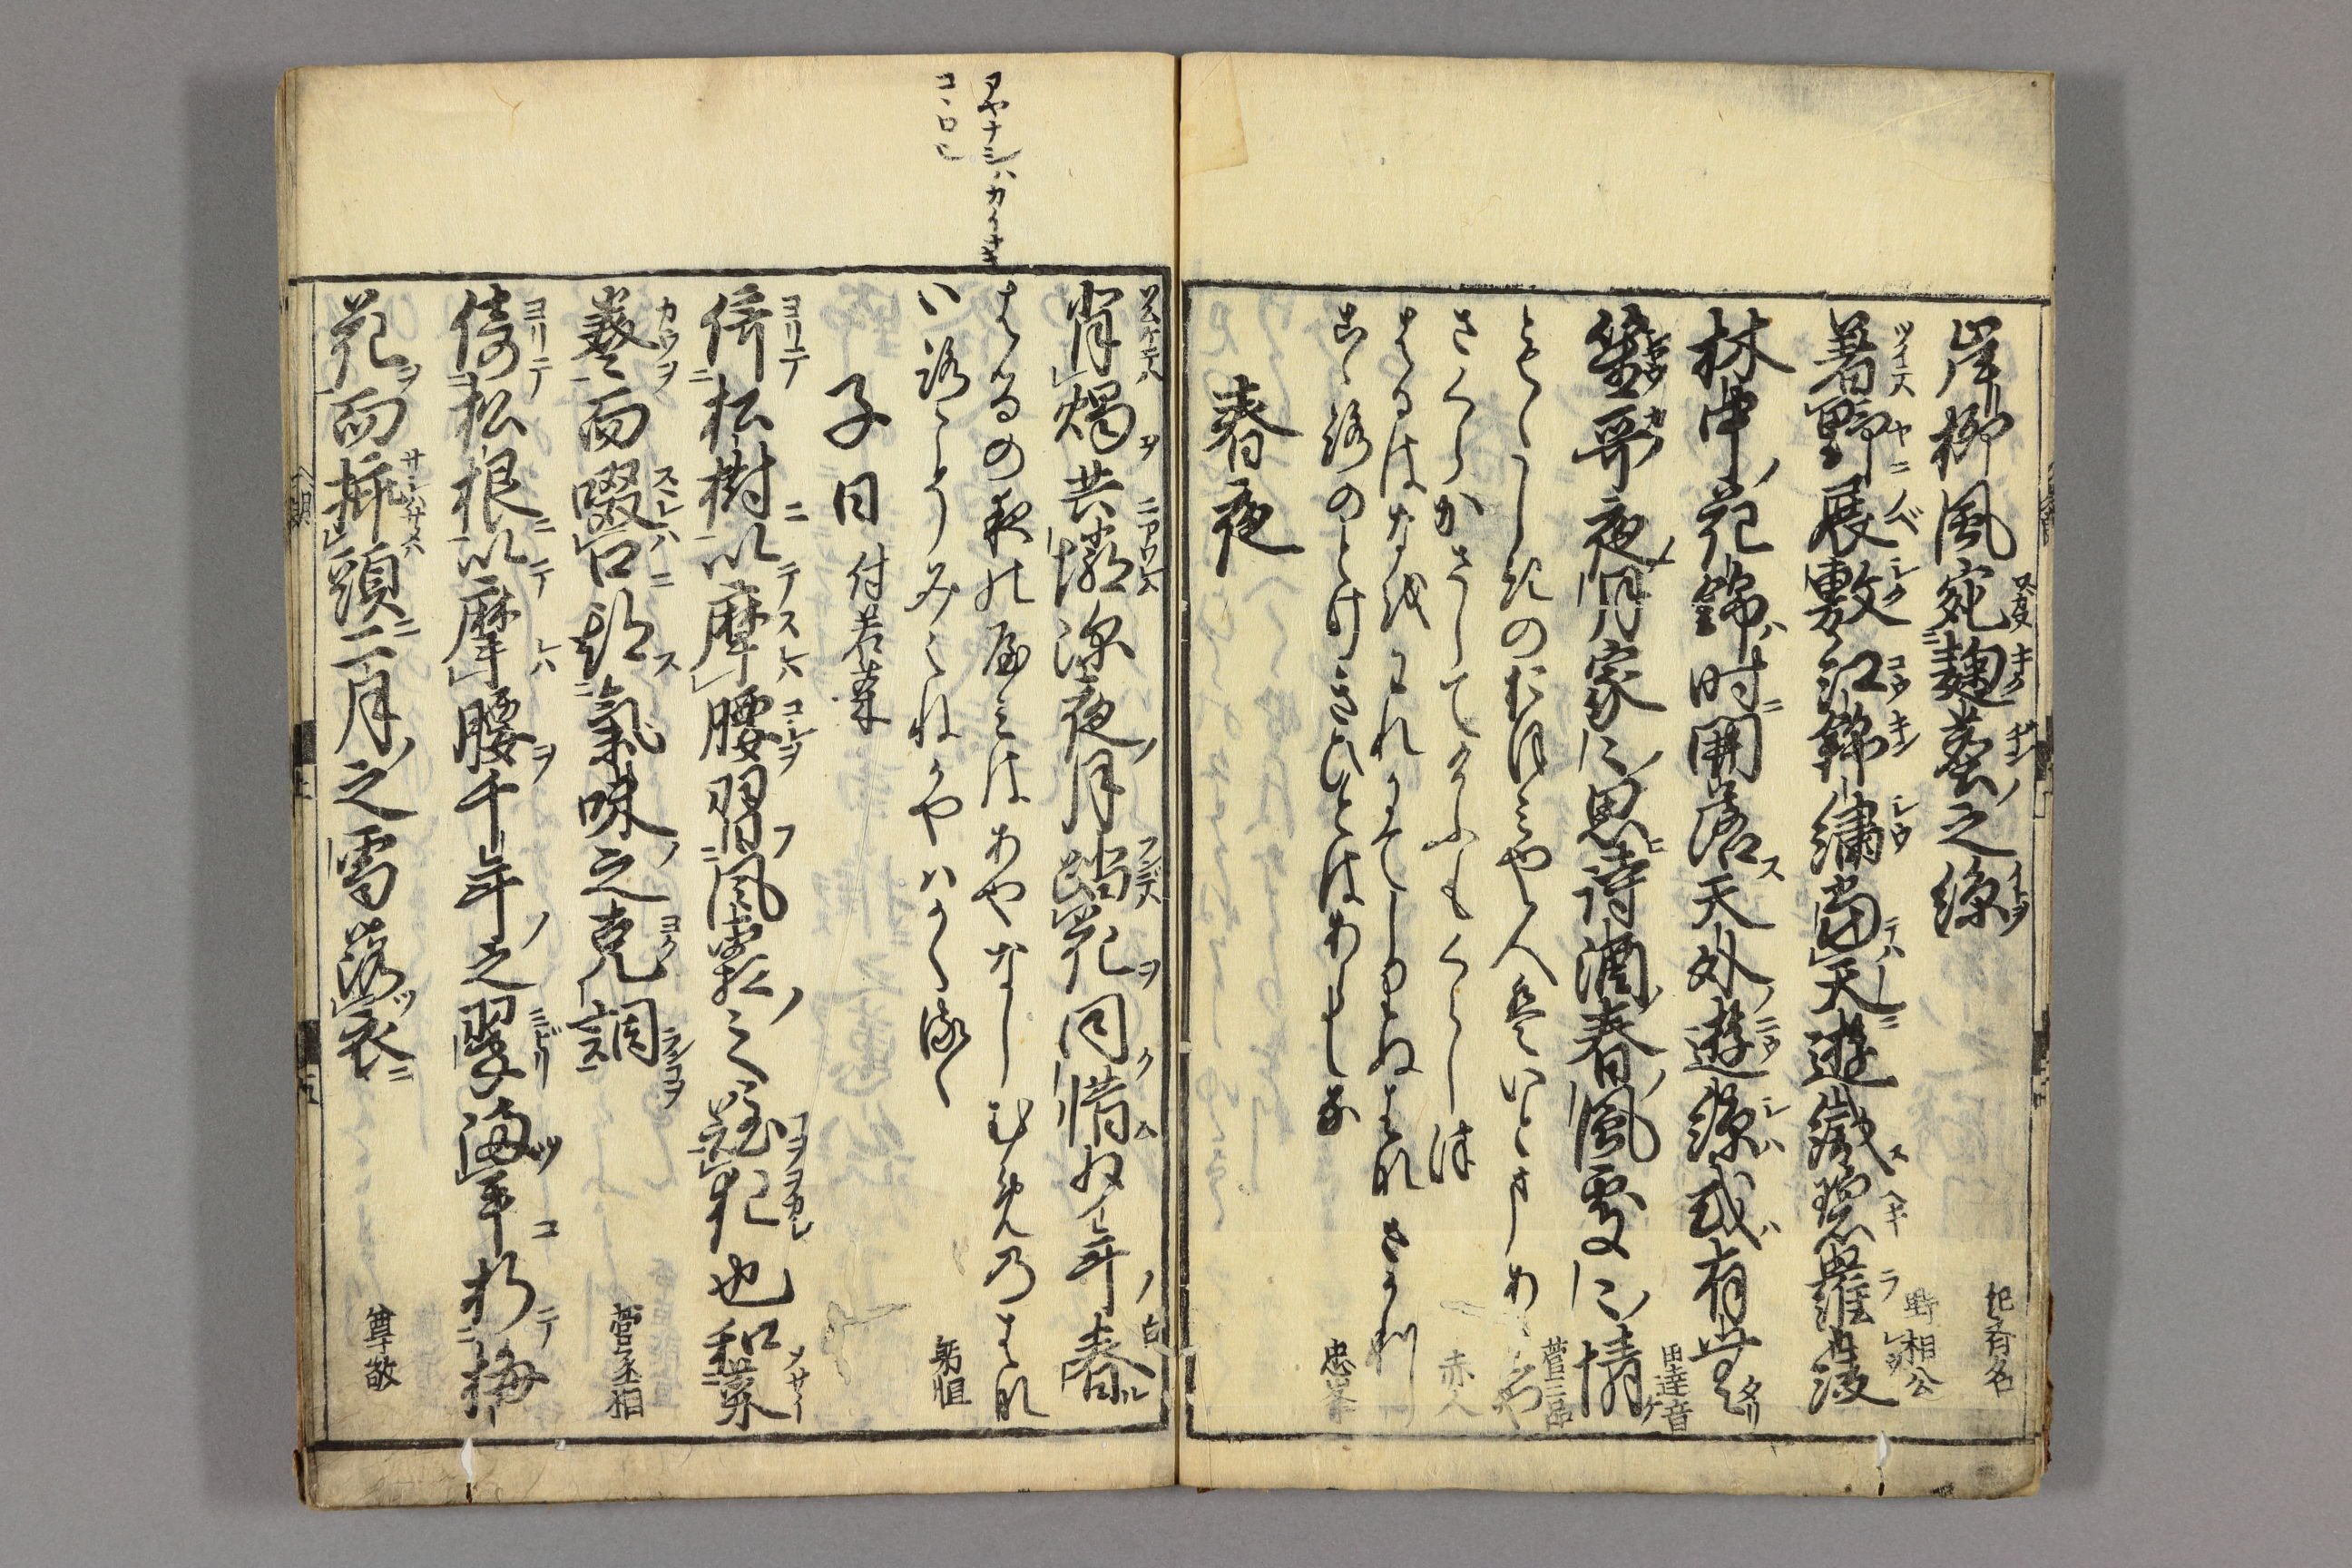 岸柳風宛麹塵之絲 紀斉名
着野展敷紅錦繡當天遊織碧羅綾 野相公
林中花錦時開落天外遊絲或有無 田達音
笙哥夜月家々思詩酒春風處々情 菅三品
もゝしきのおほみや人はいとまあれや
さくらかさしてけふもくらしつ 赤人
はるはなほわれにてしりぬはなさかり
こゝろのとけきひとはあらしな 忠岑
春夜
アヤナシハカイナキ
コヽロ也
背燭共憐深夜月踏花同惜少年春 白
はるの夜のやみはあやなしむめのはな
いろこそみえねかやはかくるゝ 躬恒
子日 付若菜
倚松樹以摩腰習風霜之難犯也和菜
羹而啜口期氣味之克調 菅丞相
倚松根以摩腰千年之翠満手折梅
花而挿頭二月之雪落衣 尊敬